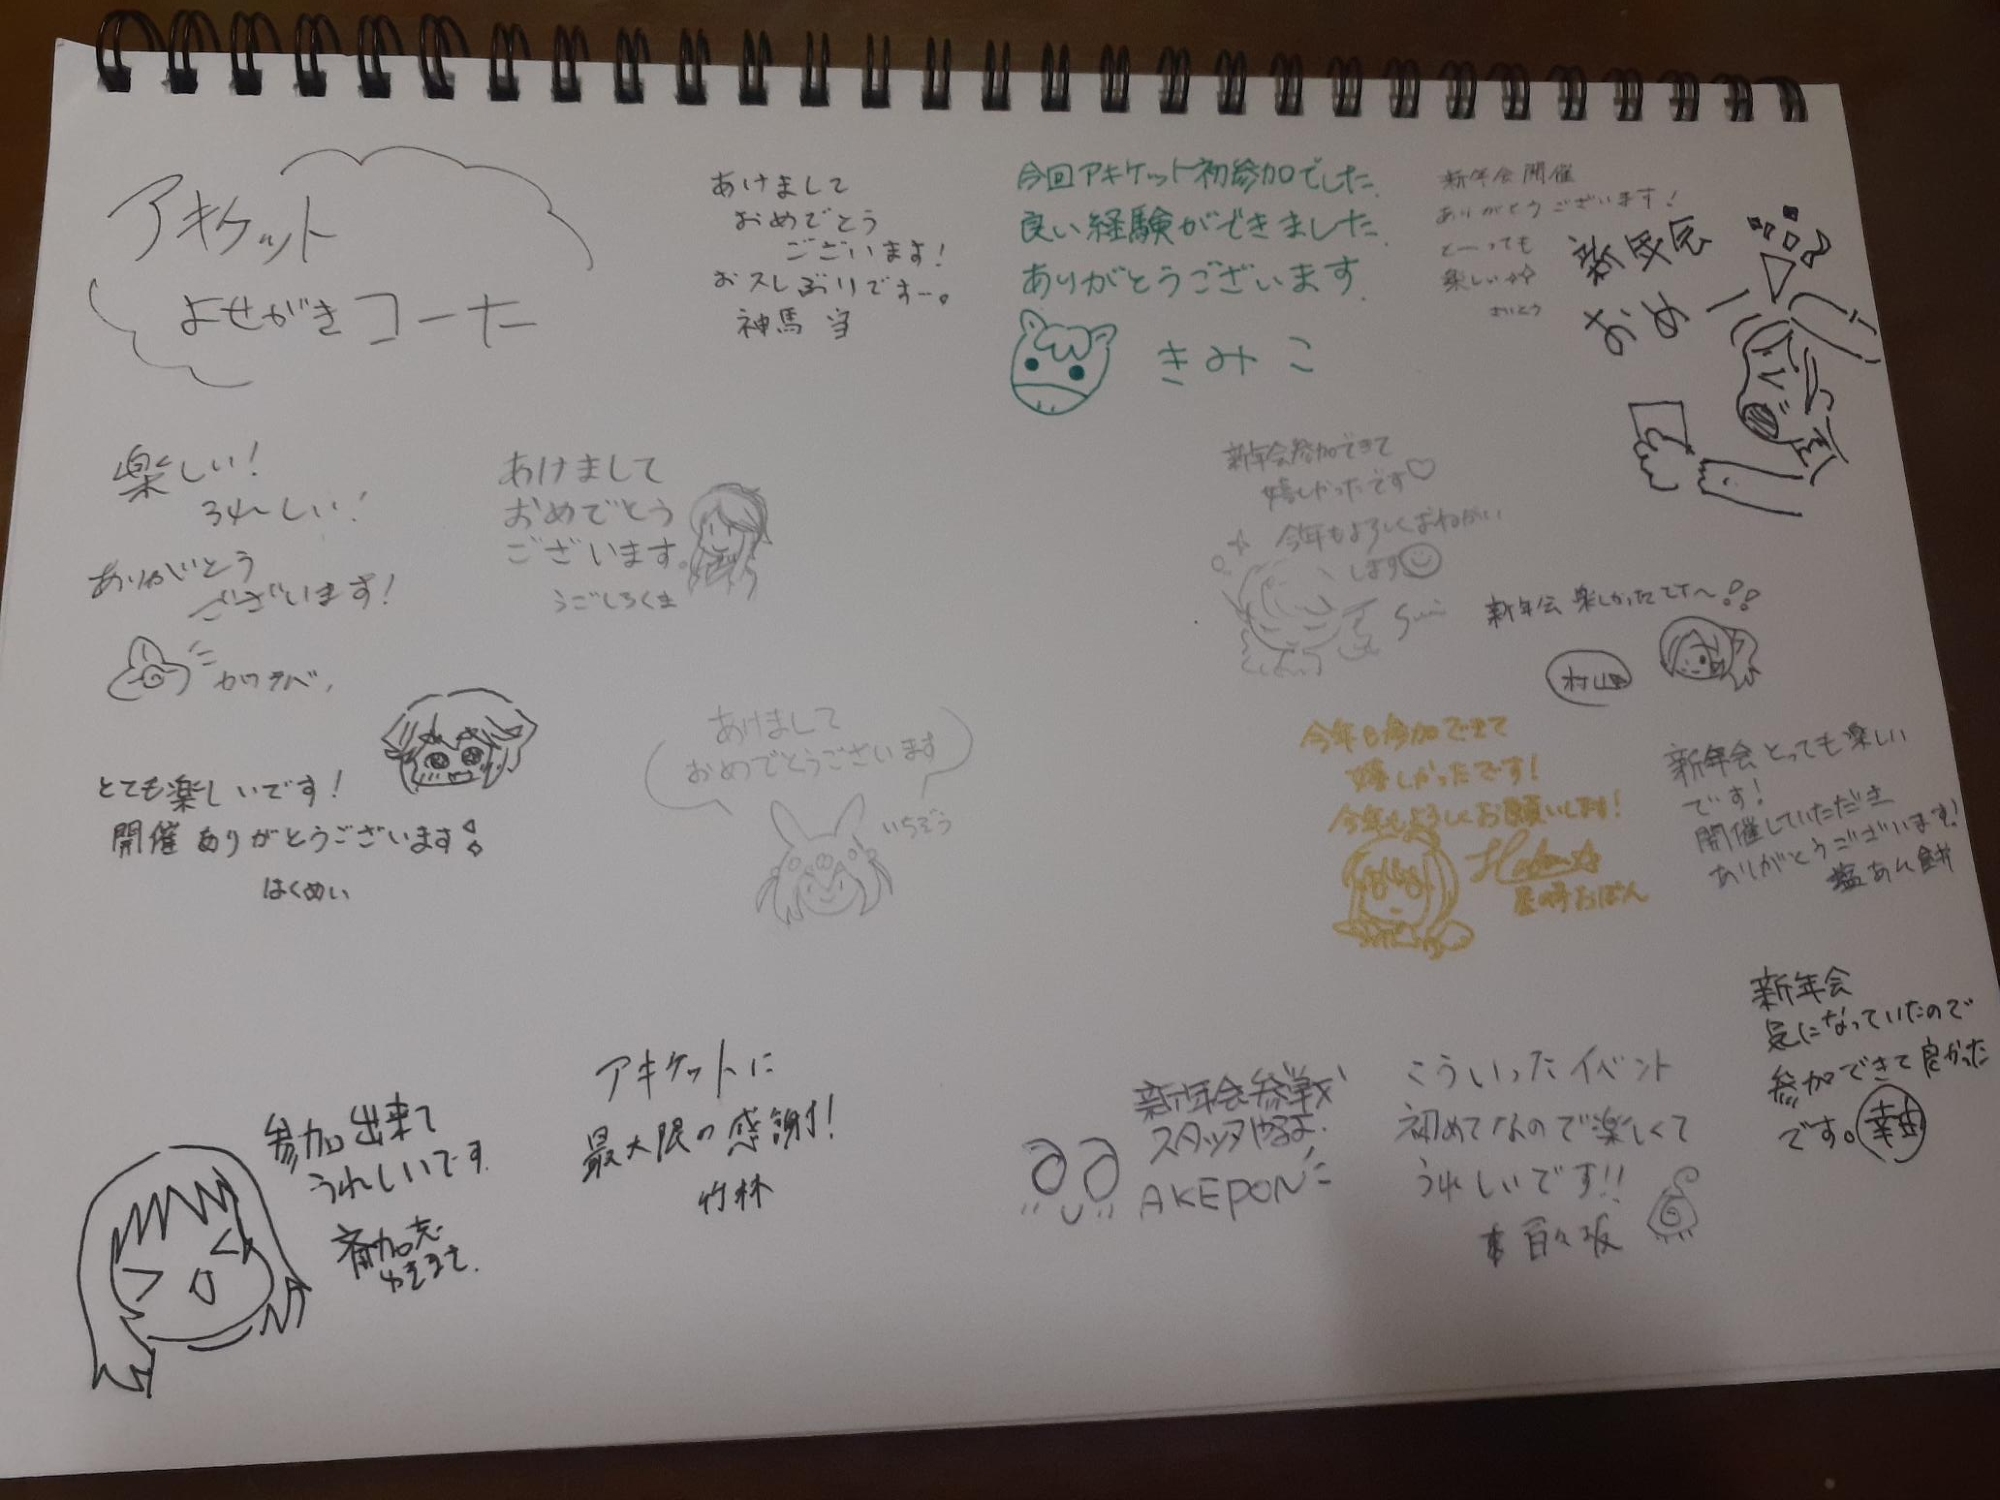 アキケット
よせがきコーナー
あけまして
おめでとう
ございます!
おスしぶりですー。
神馬 当
今回アキケット初参加でした
良い経験ができました
ありがとうございます
きみこ
新年会開催
ありがとうございます!
とーっても
楽しい
さいとう
新年会
おめ
楽しい!
うれーしい!
ありがとう
ございます!
カワラベ
あけまして
おめでとう
ございます。
うごしろくま
新年会参加できて
嬉しかったです♡
今年もよろしくおねがい
します
新年会 楽しかったです〜!!
村山
とても楽しいです!
開催ありがとうございます
はくめい
あけまして
おめでとうございます
いちぞう
今年も参加できて
嬉しかったです!
今年もよろしくお願いします!
星崎おぽん
新年会とっても楽しい
です!
開催していただき
ありがとうございます!
塩あん餅
参加出来て
うれしいです
アキケットに
最大限の感謝!
竹林
新年会参戦
スタッフやるよ
AKEPON
こういったイベント
初めてなので楽しくて
うれしいです!!
百々坂
新年会
気になっていたので
参加できて良かった
です。